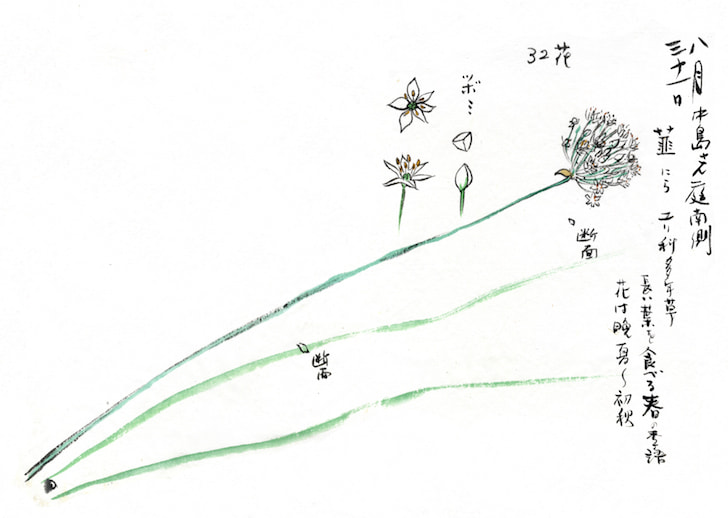 八月三十一日 中島さん庭南側
韮 にら ユリ科多年草
長い葉を食べる春の季語
花は晩夏〜初秋
32花
ツボミ
断面
断面